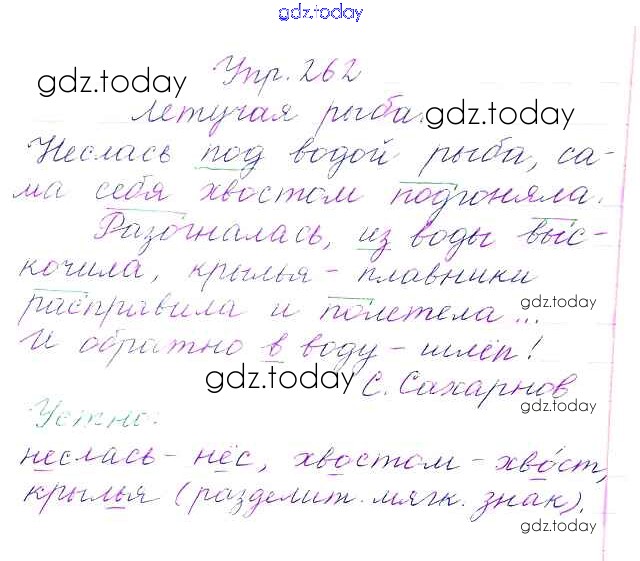 gdz.today
Упр. 262
gdz.today
Летучая рыба.
gdz.today
Неслась под водой рыба, са-
ма себя хвостом подгоняла.
Разогналась, из воды выс-
кочила, крылья - плавники
расправила и полетела...
gdz.today
И обратно в воду - шлёп!
gdz.today
С. Сахарнов
gdz.today
Устно:
неслась - нёс, хвостом - хвóст,
крылья (разделит. мягк. знак).
gdz.today